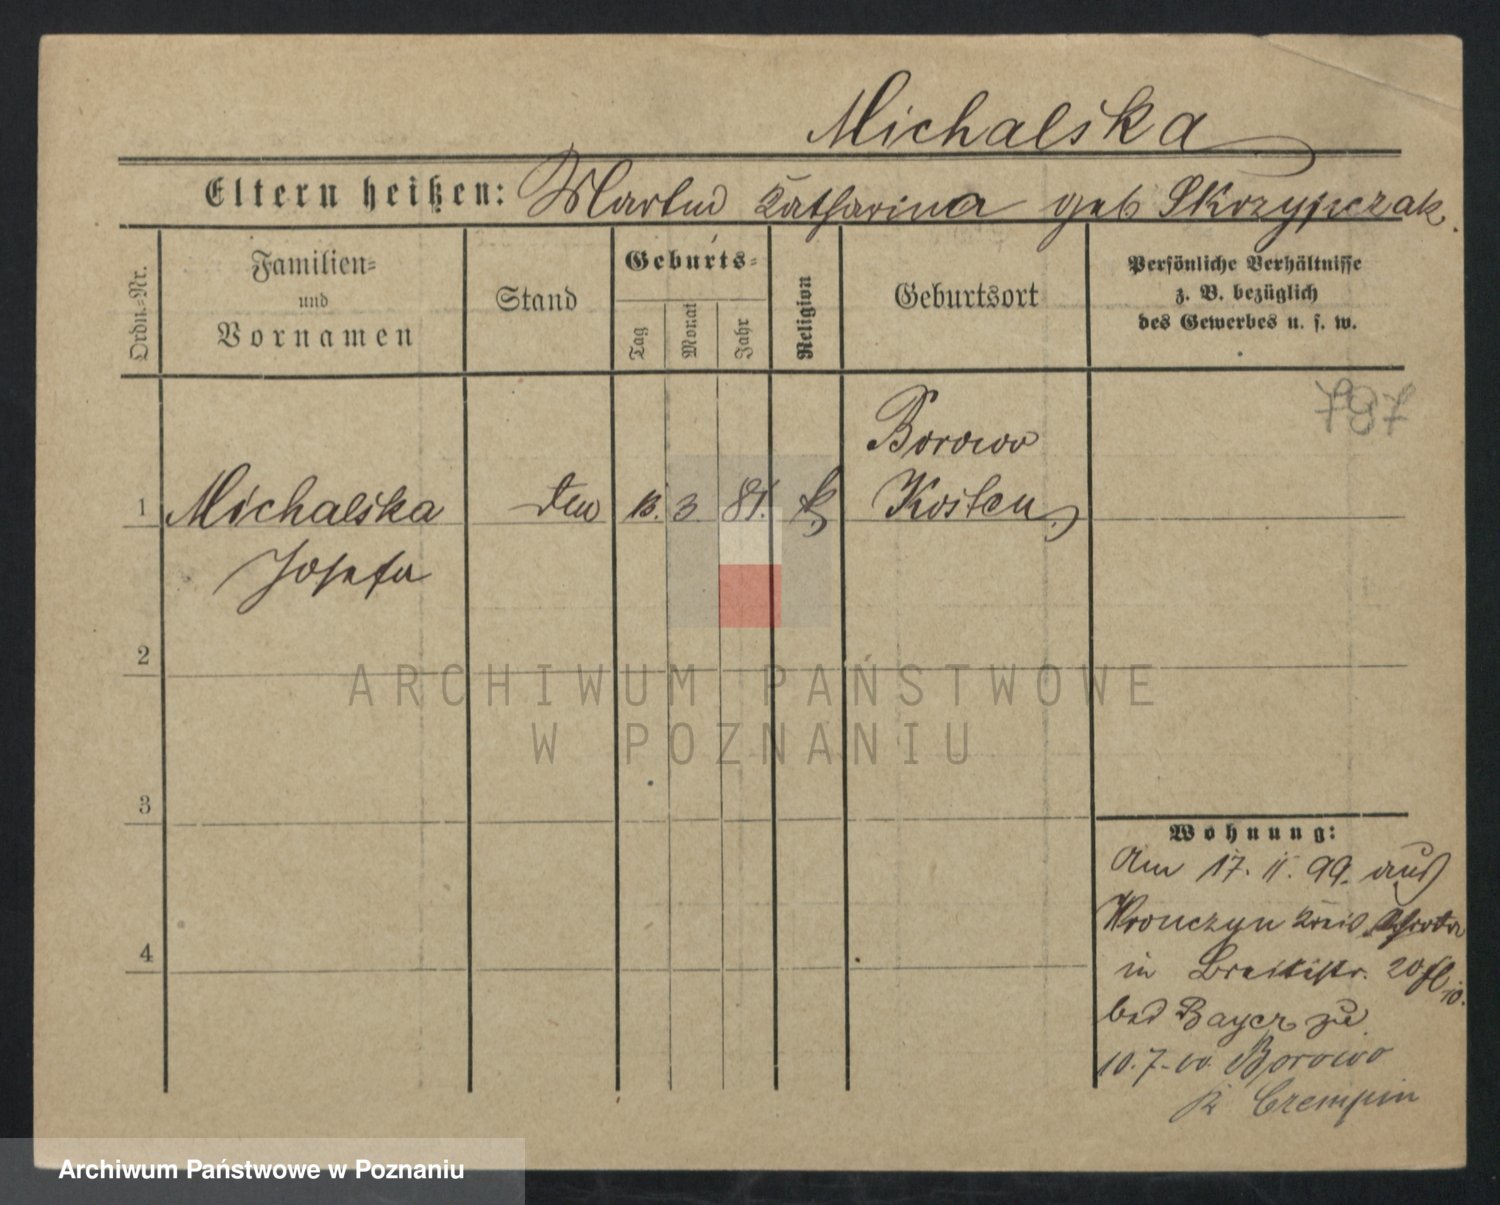 Michalska
Eltern heißen: Martin Katharina geb Skrzypczak.
Ordn.-Nr.
Familien-
und
Vornamen
Stand
Geburts-
Tag
Monat
Jahr
Religion
Geburtsort
Persönliche Verhältnisse
z. B. bezüglich
des Gewerbes u. s. w.
787
Borowo
1 Michalska 13. 3. 81. k Kosten
Josefa
2
ARCHIWUM PAŃSTWOWE
W POZNANIU
3
Wohnung:
Am 17. 11. 99. aus
Wronczyn Kreis
in Breitestr. 20
bei Bayer zu
10. 7. 00. Borowo
Czempin
4
Archiwum Państwowe w Poznaniu